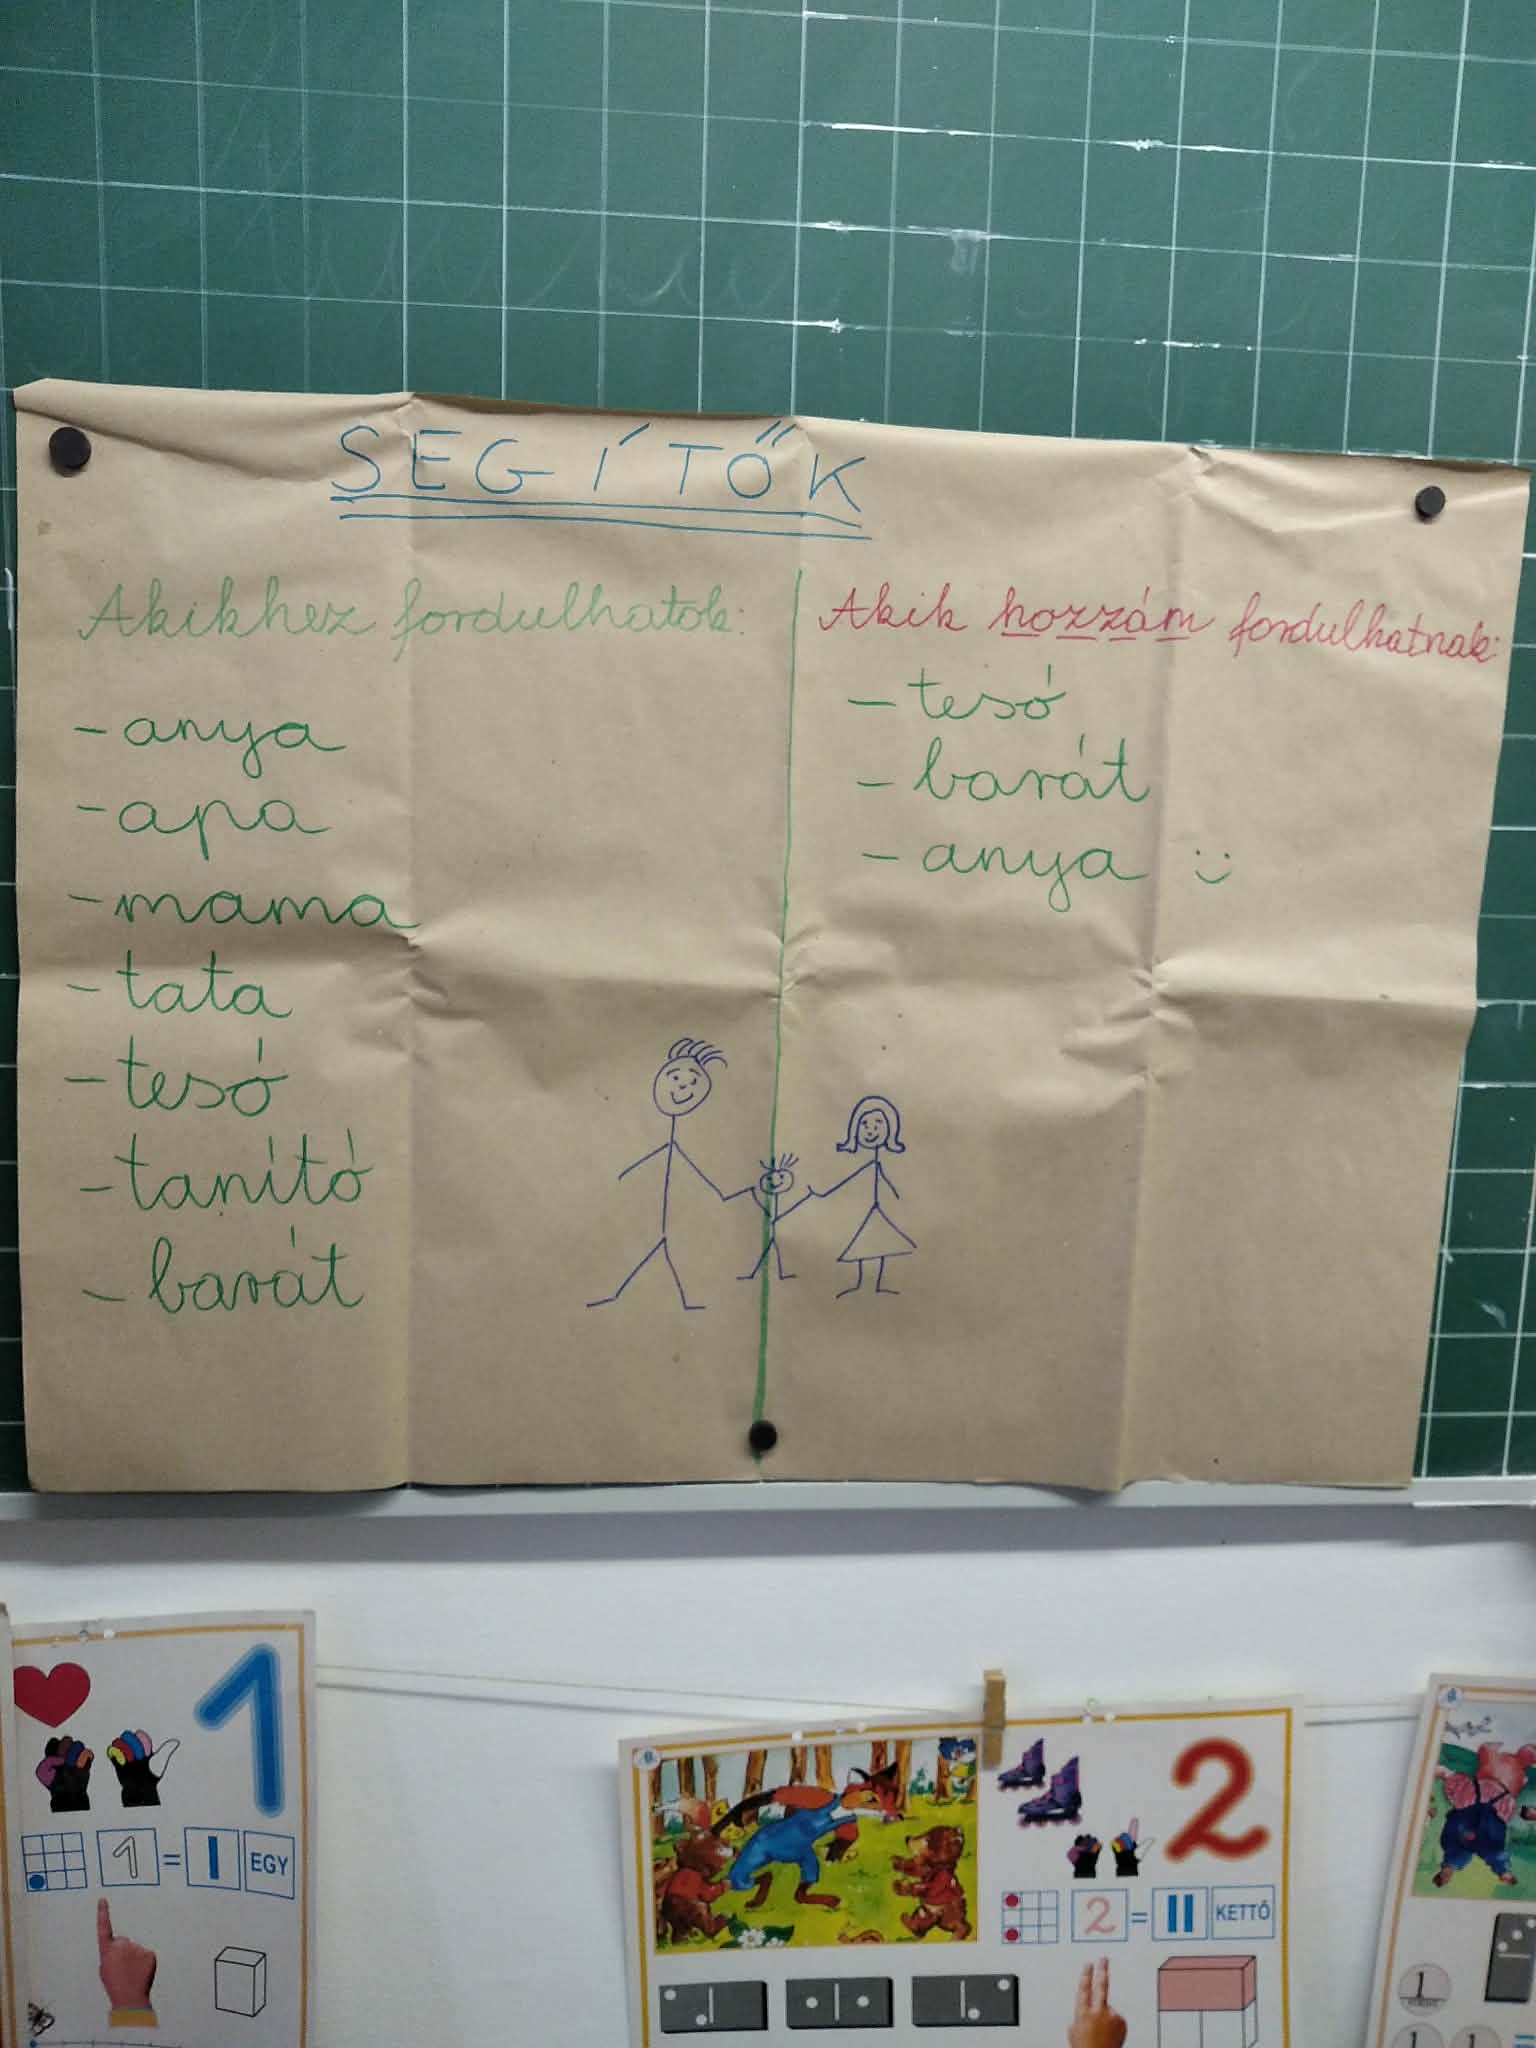 SEGÍTŐK
Akikhez fordulhatok:
- anya
- apa
- mama
- tata
- tesó
- tanító
- barát
Akik hozzám fordulhatnak:
- tesó
- barát
- anya :)
1
1 = I EGY
2
2 = II KETTŐ
1
1 1 =